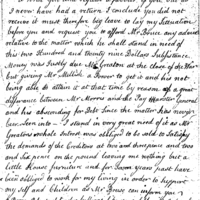 I never have had a return I conclude you did not
receive it must therefore beg leave to lay my Situation
before you and request you to afford Mr Bruce any advice
relative to the matter which he shall stand in need of
this two Hundred and twenty nine Dollars Subsistence
Money was Justly due Mr Groton at the Close of the War
but giving Mr Mellish a Power to get it and his not
being able to attain it at that time by reason of a great
difference between Mr Morris and the Pay Master General
and his absconding for Debt since the matter has never
been seen into — I stand in very great need of it as Mr
whole Interest was obliged to be sold to Satisfy
the demands of the Creditors at two and threepence and two
and six pence on the pound leaving me nothing but a
little House furniture and for seven years past have
been obliged to work for my living in order to support
my Self and Children as Mr Bruce can inform you